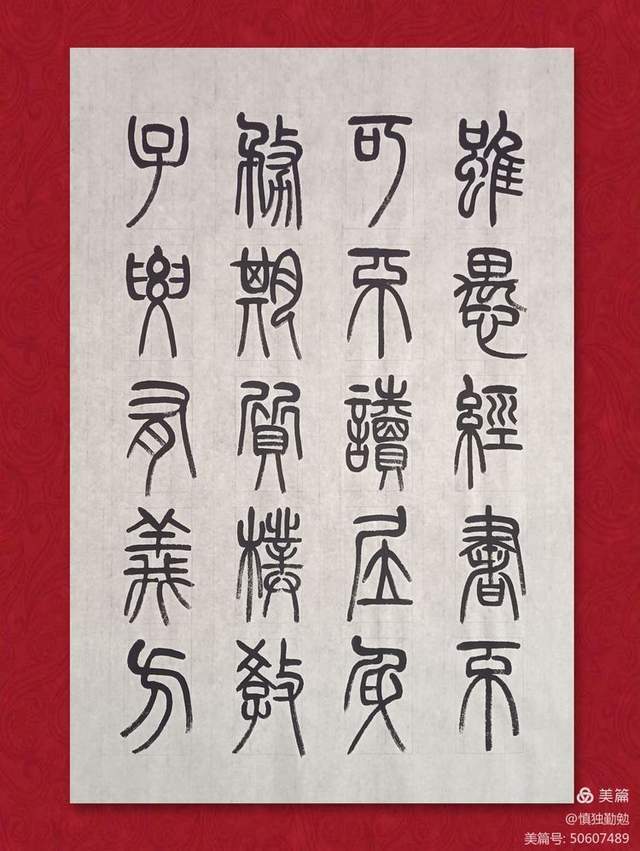 雖愚經書不
可不讀居身
務期質樸教
子要有義方
美篇
@慎独勤勉
美篇号: 50607489